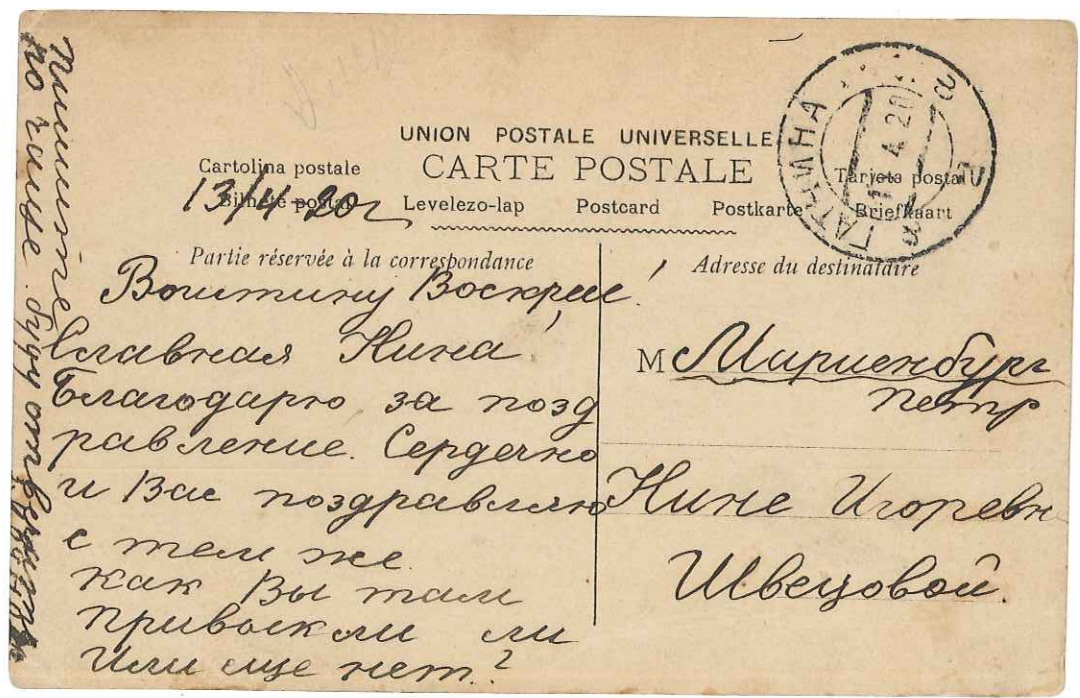 UNION POSTALE UNIVERSELLE
CARTE POSTALE
Cartolina postale
Tarjeta postal
Bilhete postal
Levelezo-lap
Postcard
Postkarte
Briefkaart
13/4-20г
Partie réservée à la correspondance
Воистину Воскресе!
Славная Нина!
Благодарю за позд
равление. Сердечно
и Вас поздравляю
с тем же.
Как Вы там
привыкли ли
или еще нет?
Пишите
по чаще. буду отвечать
Adresse du destinataire
M Мариенбург
Петр
Нине Игоревн
Швецовой.
ГАТЧИНА
4 20